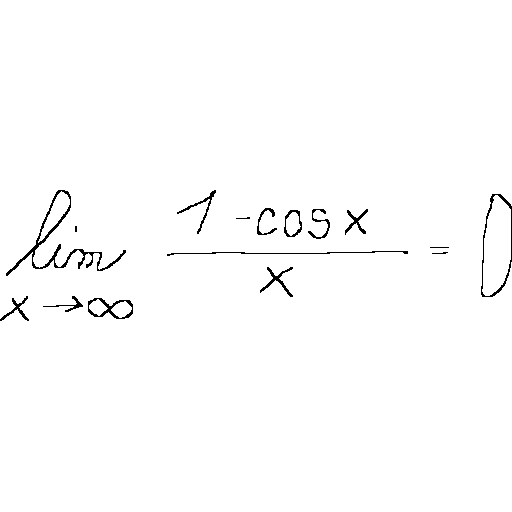 \lim_{x \to \infty} \frac{1 - \cos x}{x} = 0